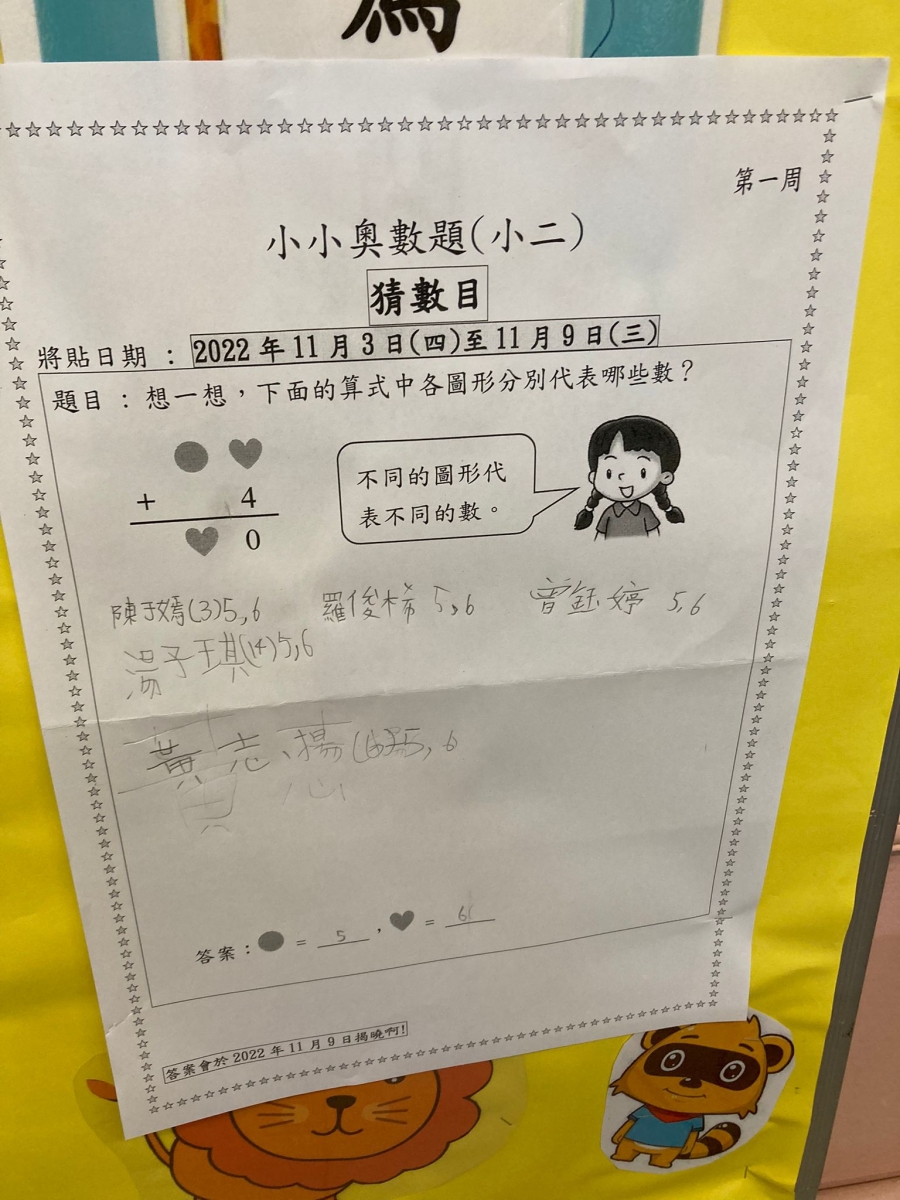 為
第一周
小小奧數題(小二)
猜數目
將貼日期 : 2022 年 11 月 3 日(四)至 11 月 9 日(三)
題目 : 想一想,下面的算式中各圖形分別代表哪些數?
+ 4
0
不同的圖形代
表不同的數。
陳子嫣(3)5,6 羅俊桸 5,6 曾鈺婷 5,6
湯子琪(14)5,6
黃志揚 5,6
答案: = 5 , = 6
答案會於 2022 年 11 月 9 日揭曉啊!